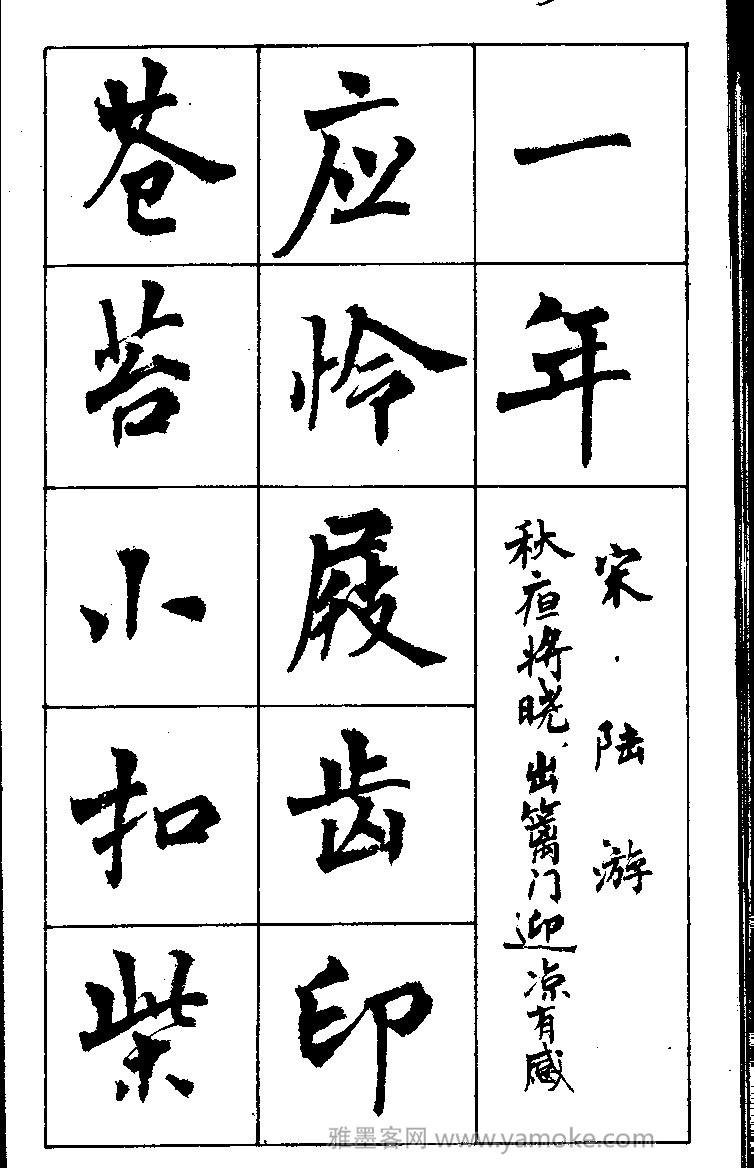 一年
宋·陆游
秋夜将晓，出篱门迎凉有感
应怜屐齿印
苍苔小扣柴
雅墨客网 www.yamoke.com